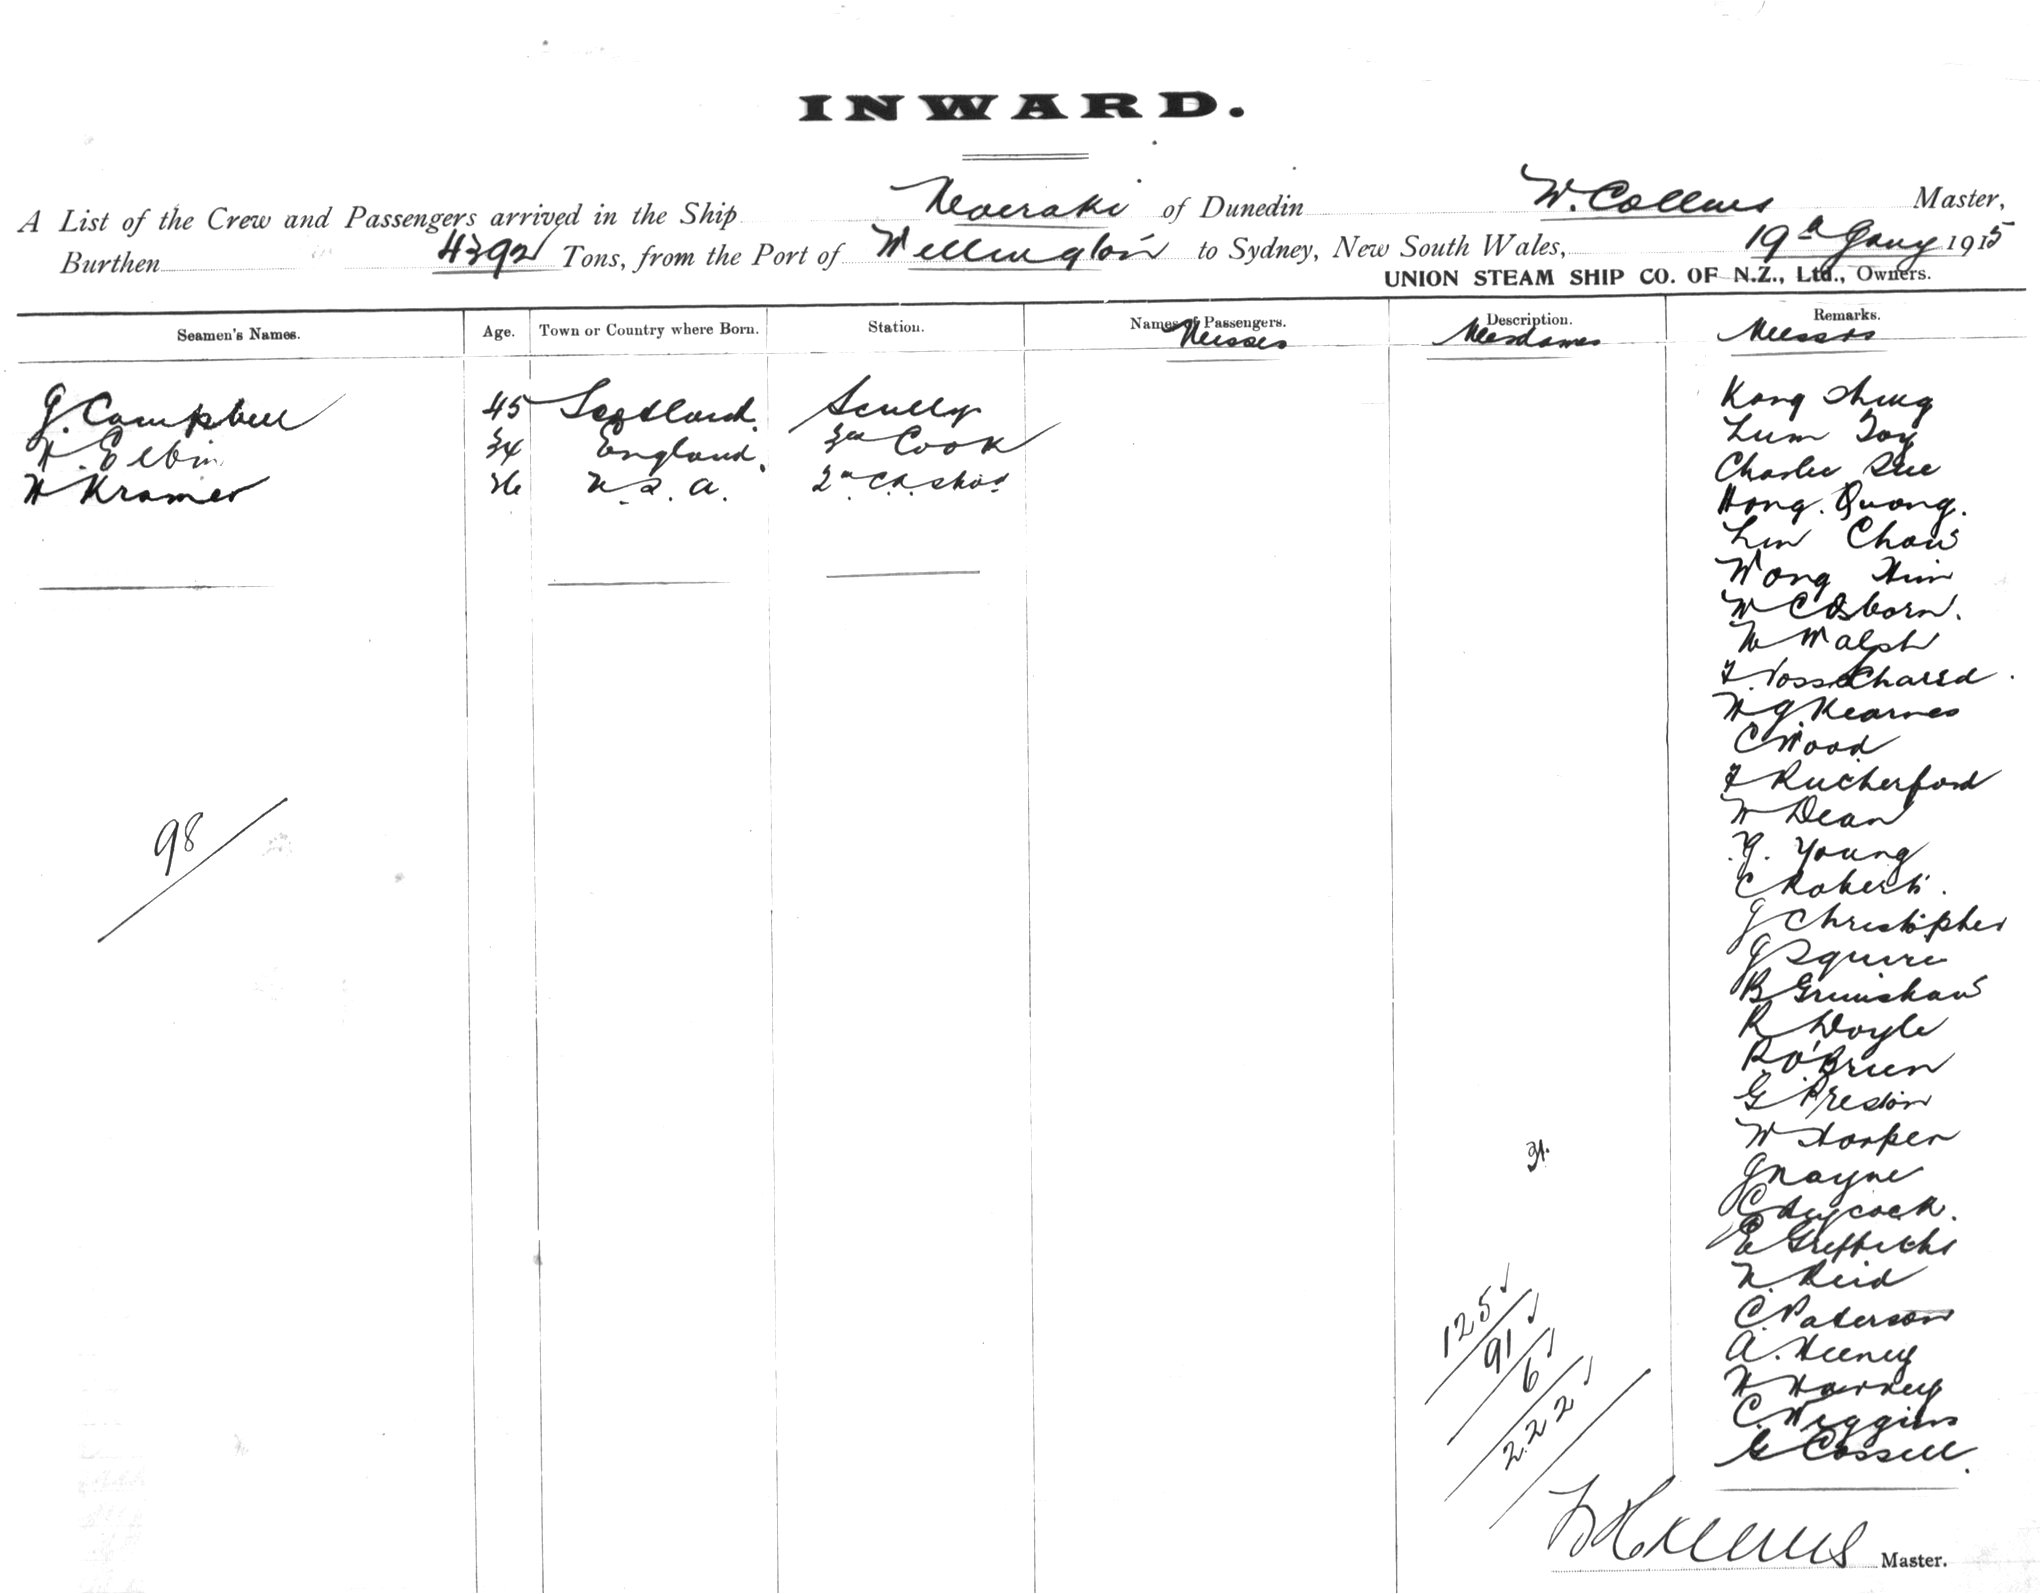 INWARD.
A List of the Crew and Passengers arrived in the Ship Moeraki of Dunedin W. Collins Master,
Burthen 4392 Tons, from the Port of Wellington to Sydney, New South Wales, 19th Jany 1915
UNION STEAM SHIP CO. OF N.Z., Ltd., Owners.
Seamen's Names. Age. Town or Country where Born. Station. Names of Passengers. Description. Remarks.
Misses Mesdames Messrs
G. Campbell 45 Scotland. Scully
H. Elbin 34 England. 3rd Cook
H Kramer 26 U.S.A. 2nd
Kong
Lum Toy
Charlie Sue
Hong Quong.
Lum Chow
Wong Him
W C Osborn.
W Walsh
F.
W J Kearnes
C Wood
F Rutherford
W Dean
G. Young
C Roberts.
J Christopher
J Squire
B Grimshaw
R Doyle
P. O'Brien
G Preston
W Harper
J Nayne
C Heycock.
E Griffiths
W. Reid
C. Paterson
A. Heeney
H Harvey
C. Wiggins
G Cossell.
98
31.
125
91
6
222
W Collins Master.